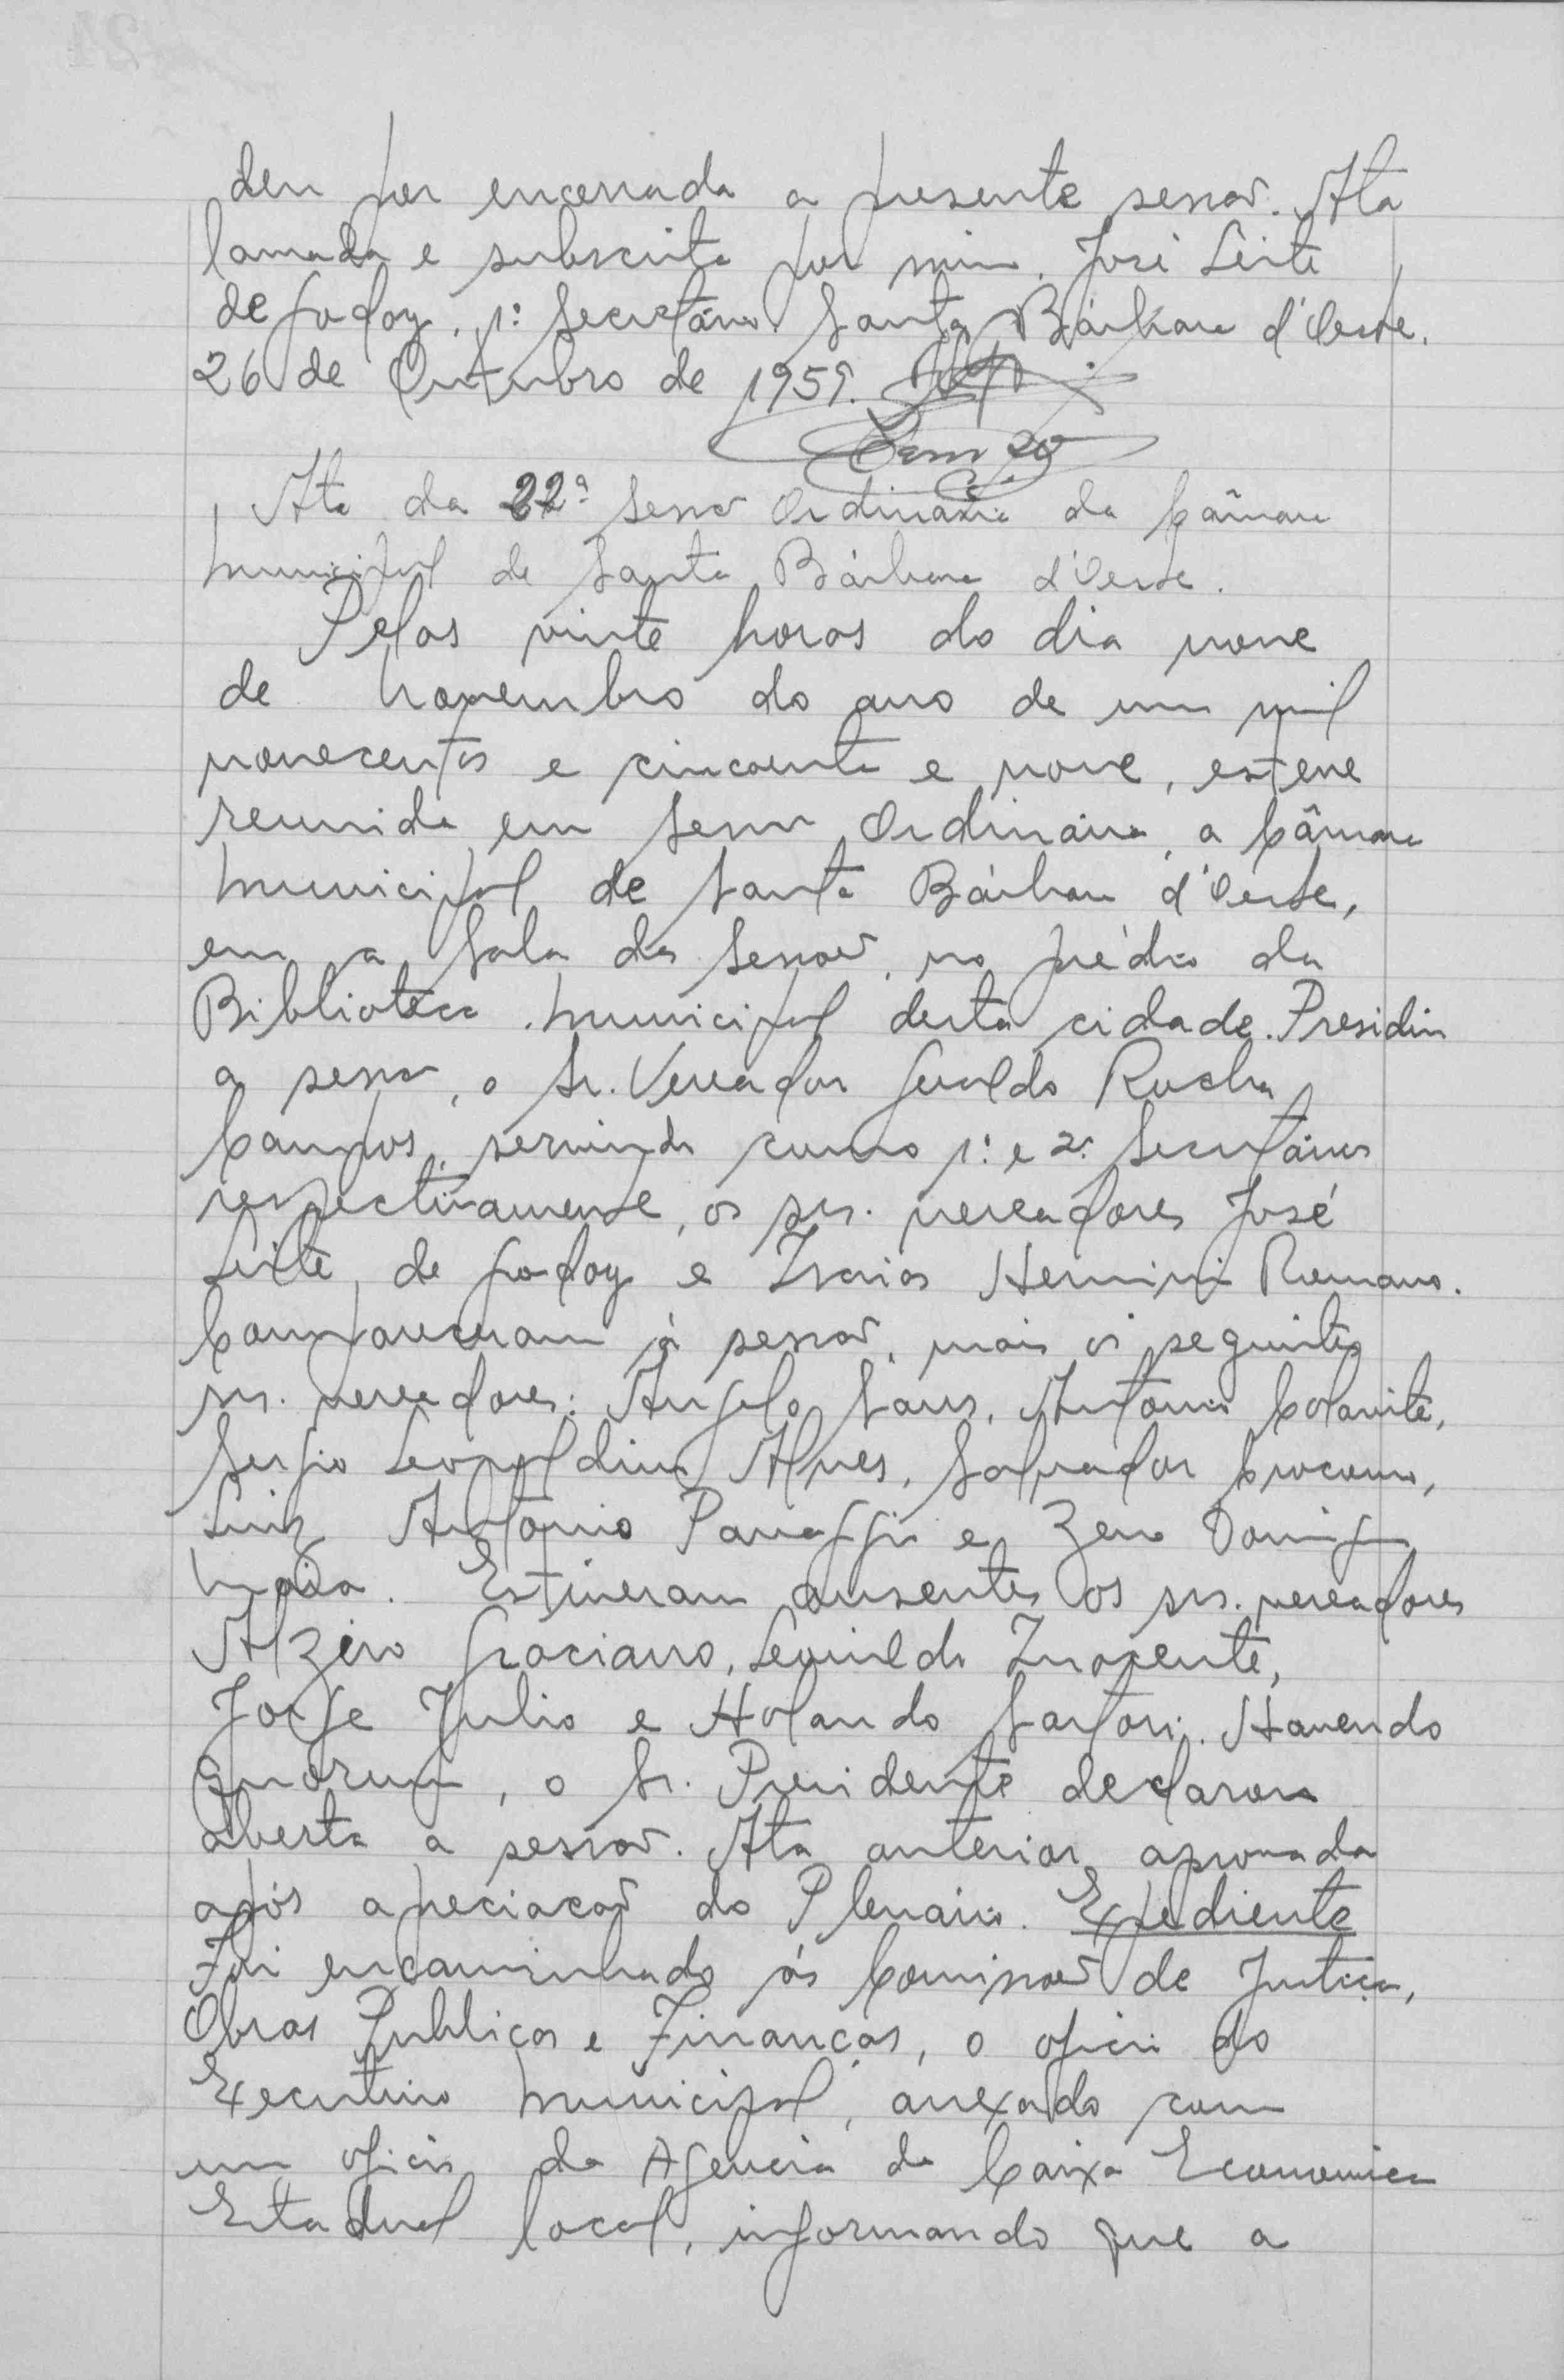 deu por encerrada a presente sessão. Ata
lavrada e subscrita por mim. José Leite
de Godoy, 1º Secretário. Santa Bárbara d'Oeste.
26 de Outubro de 1959.
Ata da 22ª Sessão Ordinária da Câmara
Municipal de Santa Bárbara d'Oeste.
Pelas vinte horas do dia nove
de Novembro do ano de um mil
novecentos e cincoenta e nove, esteve
reunida em Sessão Ordinária, a Câmara
Municipal de Santa Bárbara d'Oeste,
em a Sala das Sessões, no prédio da
Biblioteca Municipal desta cidade. Presidiu
a sessão, o Sr. Vereador Geraldo Rocha
Campos, servindo como 1º e 2º Secretários
respectivamente, os srs. vereadores José
Leite de Godoy e Izaias Herminio Romano.
Compareceram à sessão, mais os seguintes
srs. vereadores: Angelo Sans, Antonio
Sergio Leopoldino Alves, Salvador
Luiz Antonio Panaggio e Zeno
Maia. Estiveram ausentes os srs. vereadores
Alziro Graciano, Leovildo Inocente,
Jorge Julio e Holando Sartori. Havendo
quorum, o Sr. Presidente declarou
aberta a sessão. Ata anterior, aprovada
após apreciação do Plenário. Expediente
Foi encaminhado às Comissões de Justiça,
Obras Publicas e Finanças, o oficio do
Executivo Municipal, anexado com
um oficio da Agencia da Caixa Economica
Estadual local, informando que a